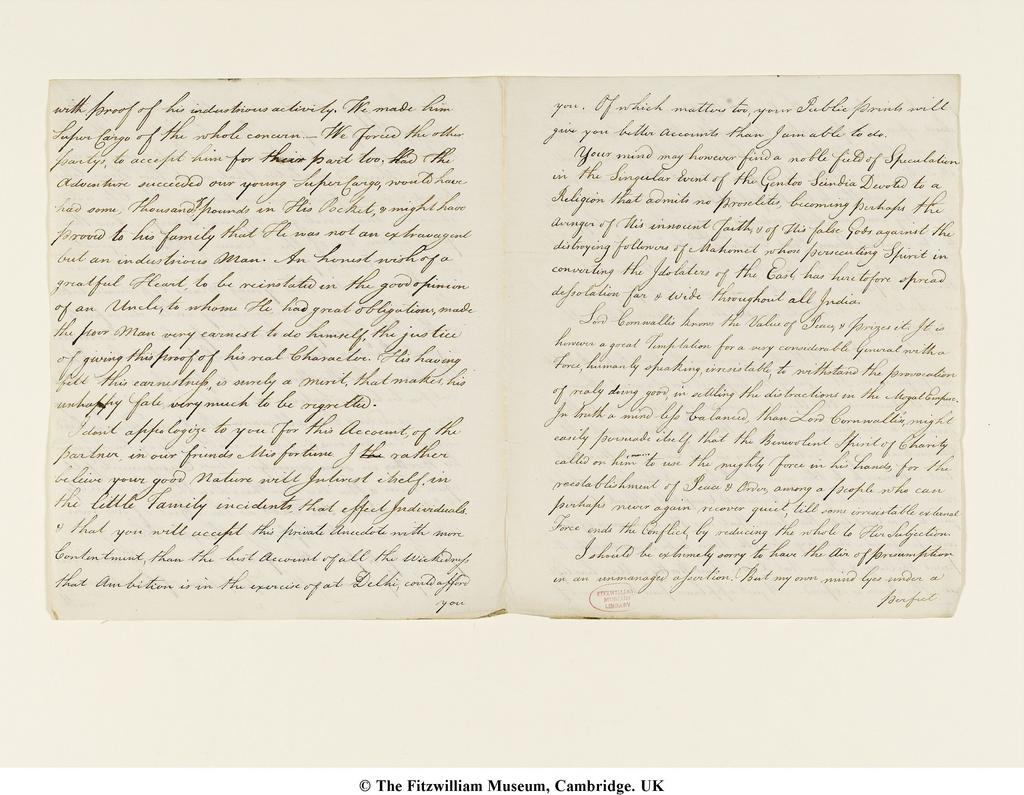 with proof of his industrious activity. We made him
Super Cargo of the whole concern — We forced the other
partys, to accept him for their part too, Had the
Adventure succeeded our young Super Cargo, would have
had some, thousand pounds in His Pocket, & might have
proved to his family that He was not an extravagent
but an industrious Man. An honest wish of a
greatful Heart, to be reinstated in the good opinion
of an Uncle, to whome He had great obligations, made
the poor Man very earnest to do himself, the justice
of giving this proof of his real Character. His having
felt this earnestness, is surely a merit, that makes, his
unhappy fate, very much to be regretted.
I dont appologize to you for this Account, of the
partner, in our friends Misfortune I the rather
believe your good Nature will Interest itself, in
the little Family incidents, that effect Individuals.
& that you will accept this private Anecdote with more
Contentment, than the best Account of all the Wickedness
that Ambition is in the exercise of at Delhi, could afford
you
you. Of which matters too, your Public prints will
give you better Accounts than I am able to do.
Your mind may however find a noble field of Speculation
in the Singular Event of the Gentoo Scindia Devoted to a
Religion that admits no Proselites, becoming perhaps the
avinger of His innocent faith, & of His false Gods against the
distroying followers of Mahomet whose persecuting Spirit in
converting the Idolaters of the East, has heretofore spread
dessolation far & Wide throughout all India.
Lord Cornwallis knows the Value of Peace, & prizes it. It is
however a great Temptation for a very considerable General with a
Force, humanly speaking, irresistable, to withstand the provocation
of realy doing good, in setling the distractions in the Mogul Empire.
In truth a mind less balanced, than Lord Cornwallis's, might
easily persuade itself that the Benevolent Spirit of Charity
called on him to use the mighty force in his hands, for the
reestablishment of Peace & Order, among a people who can
perhaps never again, recover quiet, till some irresistable external
Force ends the Conflict, by reducing the whole to Her Subjection.
I should be extremely sorry to have the Air of presumption
in an unmanaged assertion. But my own mind lyes under a
Perfect
FITZWILLIAM
MUSEUM
LIBRARY
© The Fitzwilliam Museum, Cambridge. UK